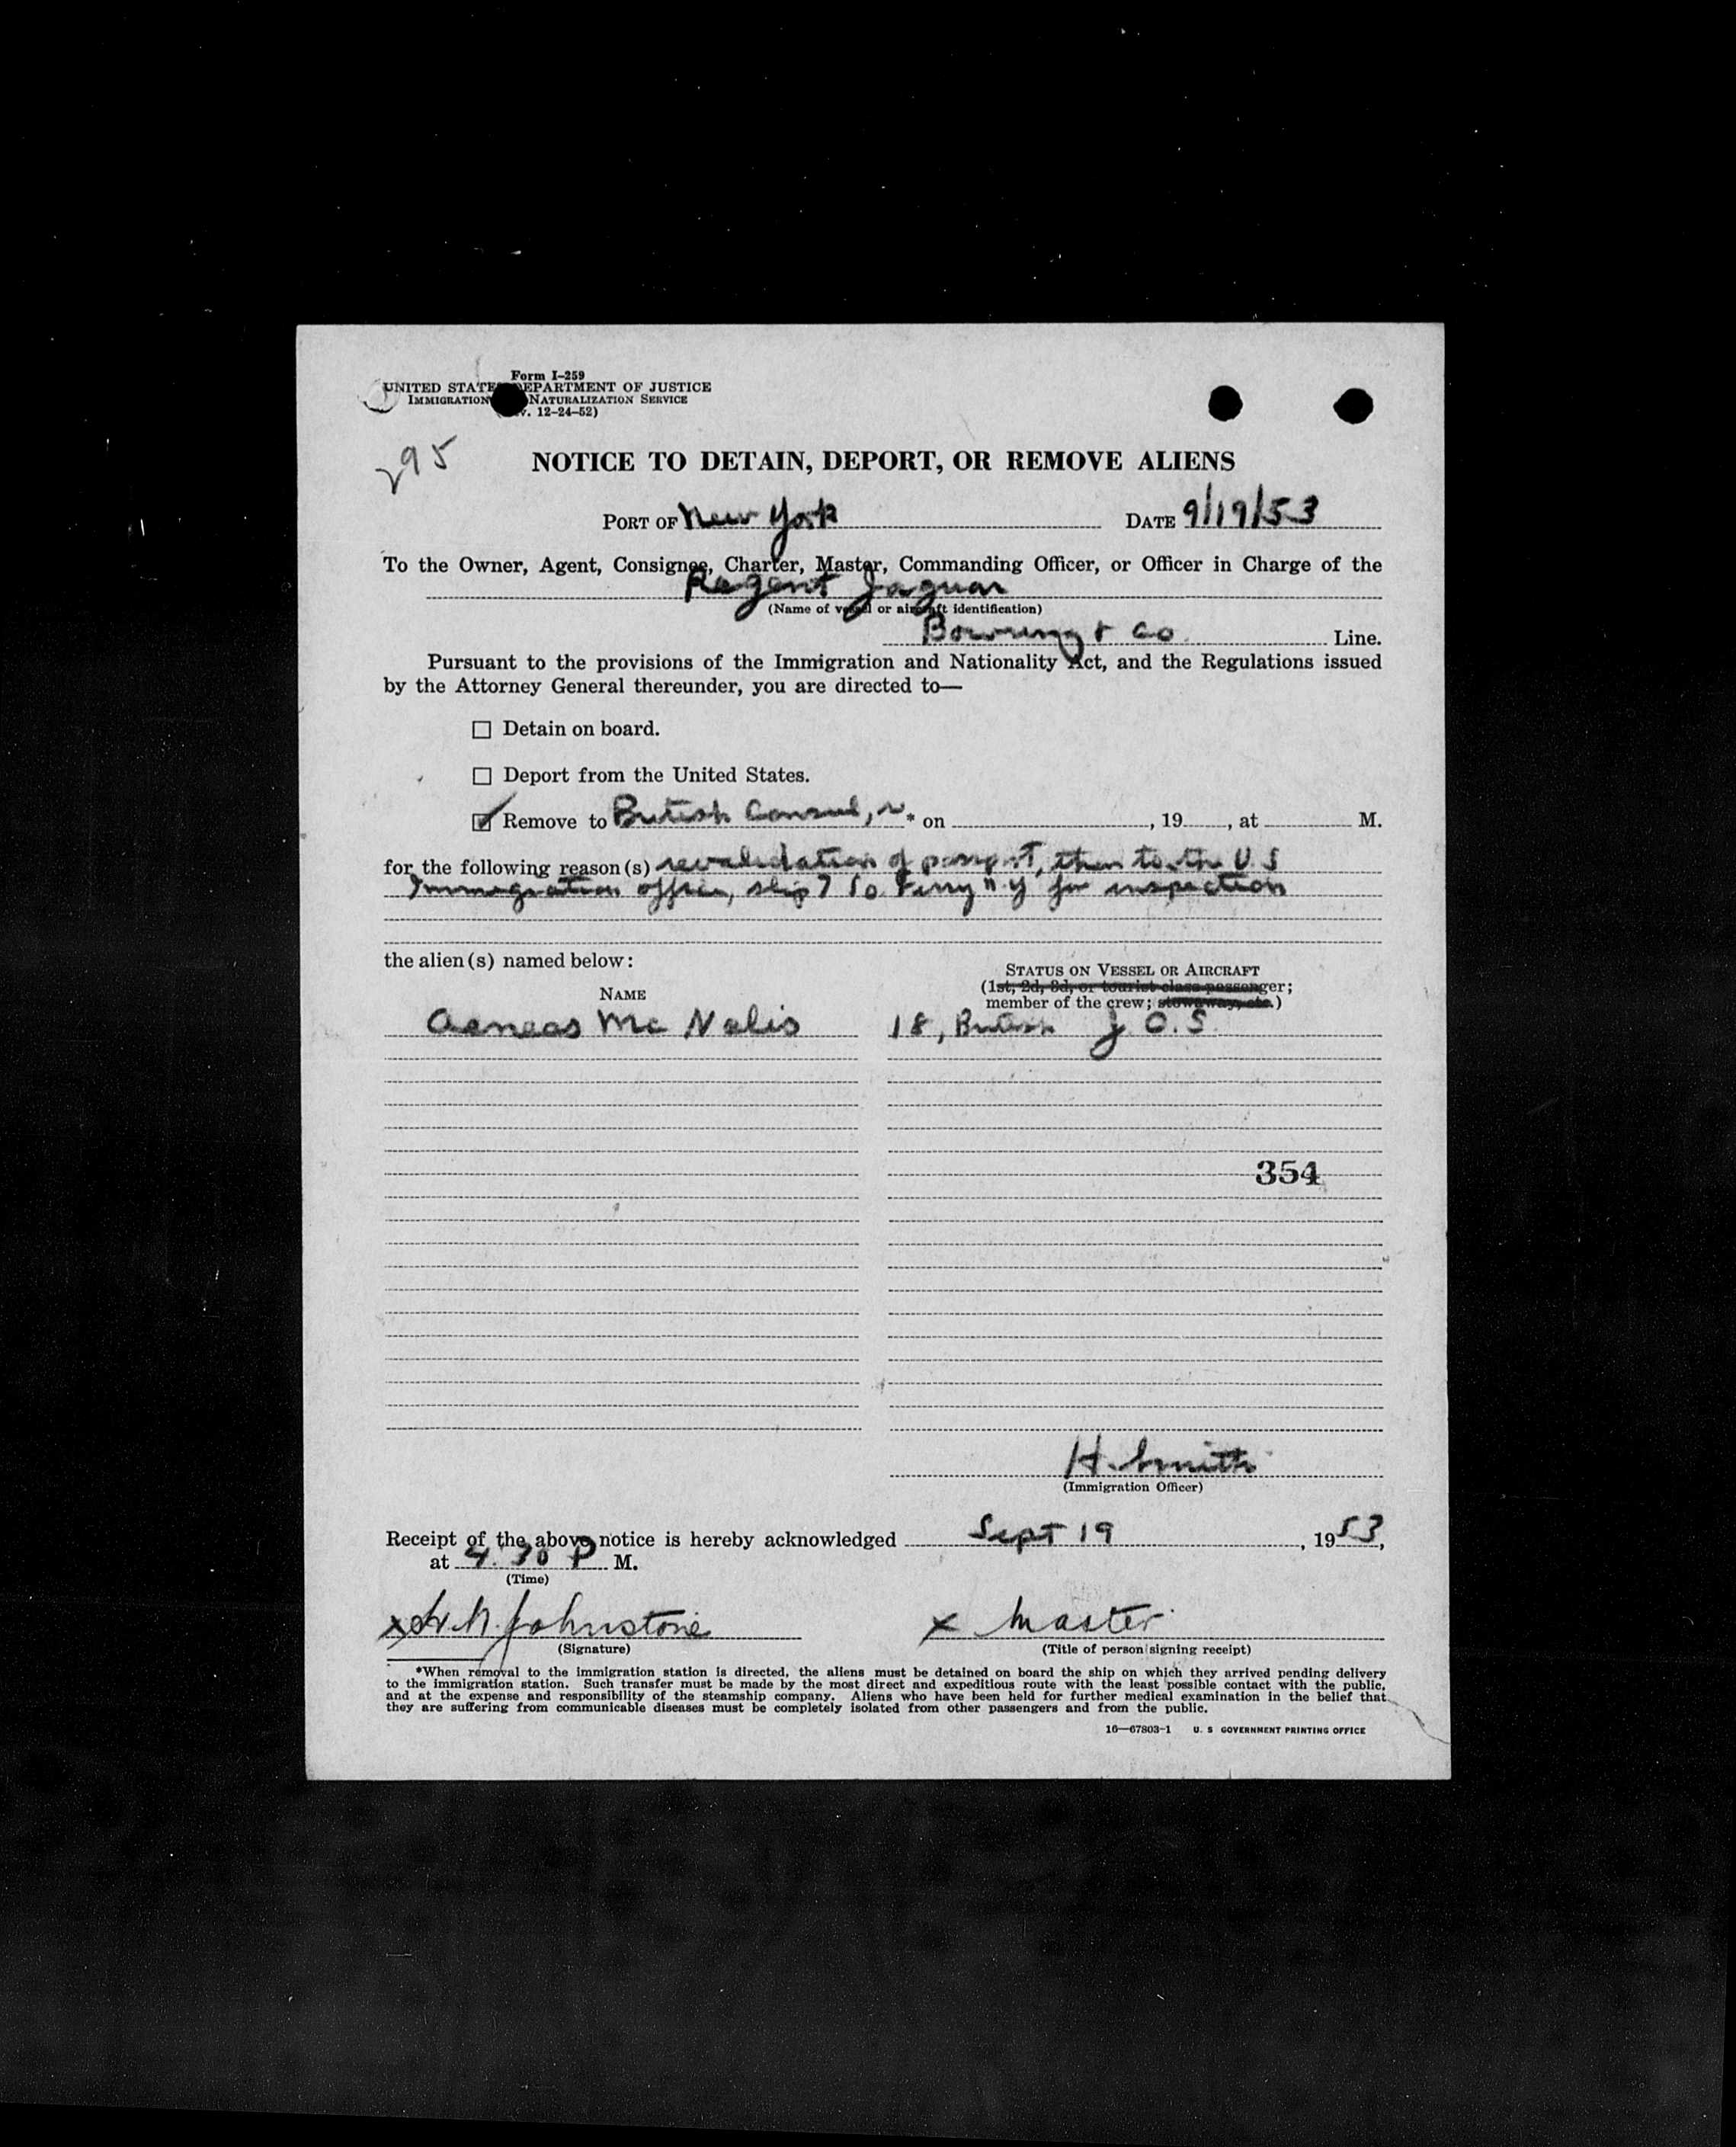 Form I-259
UNITED STATE DEPARTMENT OF JUSTICE
IMMIGRATION NATURALIZATION SERVICE
v. 12-24-52)
295
NOTICE TO DETAIN, DEPORT, OR REMOVE ALIENS
PORT OF New York DATE 9/19/53
To the Owner, Agent, Consignee, Charter, Master, Commanding Officer, or Officer in Charge of the
Regent Jaguar
(Name of vessel or aircraft identification)
Bowring & Co Line.
Pursuant to the provisions of the Immigration and Nationality Act, and the Regulations issued
by the Attorney General thereunder, you are directed to—
☐ Detain on board.
☐ Deport from the United States.
☑ Remove to British Consul, * on , 19 , at M.
for the following reason(s) revalidation of passport, then to the U S
Immigration office, slip 7 So. Ferry N.Y for inspection
the alien(s) named below:
STATUS ON VESSEL OR AIRCRAFT
(1st, 2d, 3d, or tourist class passenger;
NAME
member of the crew; stowaway, etc.)
Aeneas Mc Nelis 18, British J. O.S.
354
H. Smith
(Immigration Officer)
Receipt of the above notice is hereby acknowledged Sept 19, 1953,
at 4.30 P M.
(Time)
x Johnstone x Master
(Signature) (Title of person signing receipt)
*When removal to the immigration station is directed, the aliens must be detained on board the ship on which they arrived pending delivery
to the immigration station. Such transfer must be made by the most direct and expeditious route with the least possible contact with the public,
and at the expense and responsibility of the steamship company. Aliens who have been held for further medical examination in the belief that
they are suffering from communicable diseases must be completely isolated from other passengers and from the public.
16—67803-1 U. S GOVERNMENT PRINTING OFFICE